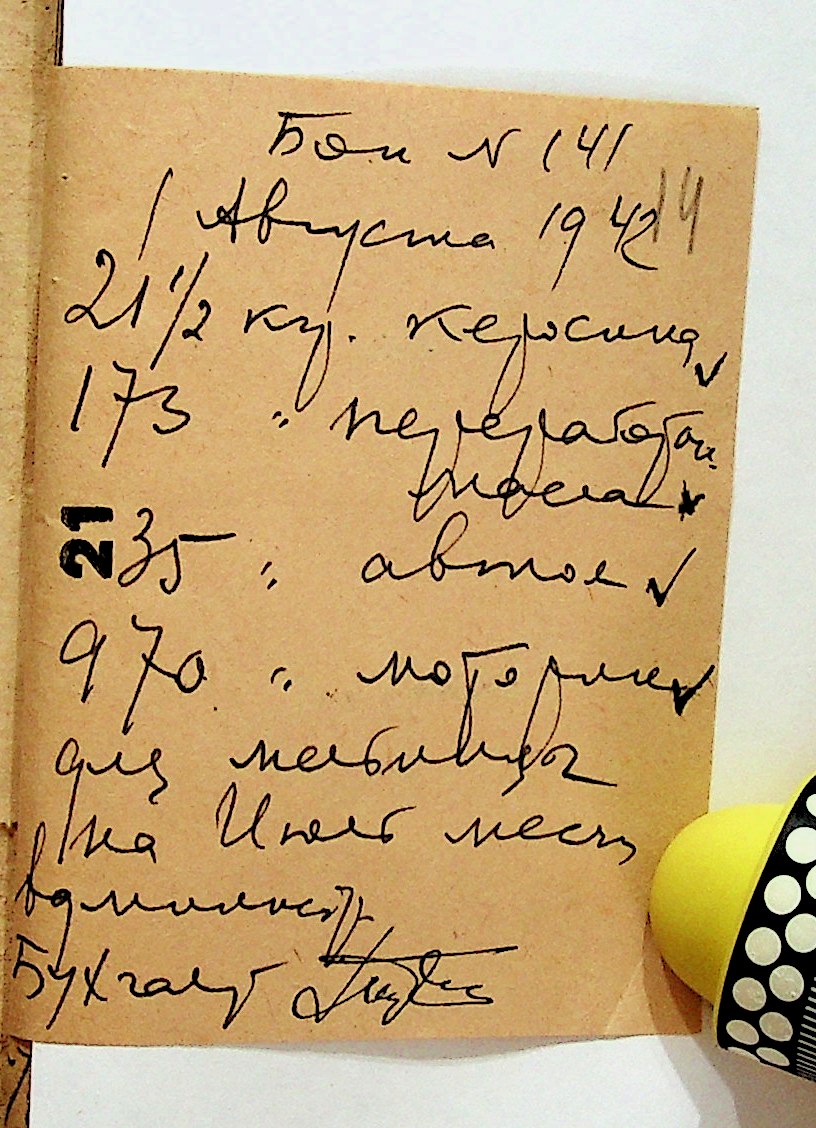 Бон N 141
14
1 Августа 1942
21 1/2 кгр. керосина
173 " переработан.
масла
21
35 " автол
970 " моторин
для мельницы
на Июль месяц
Бухгалтер